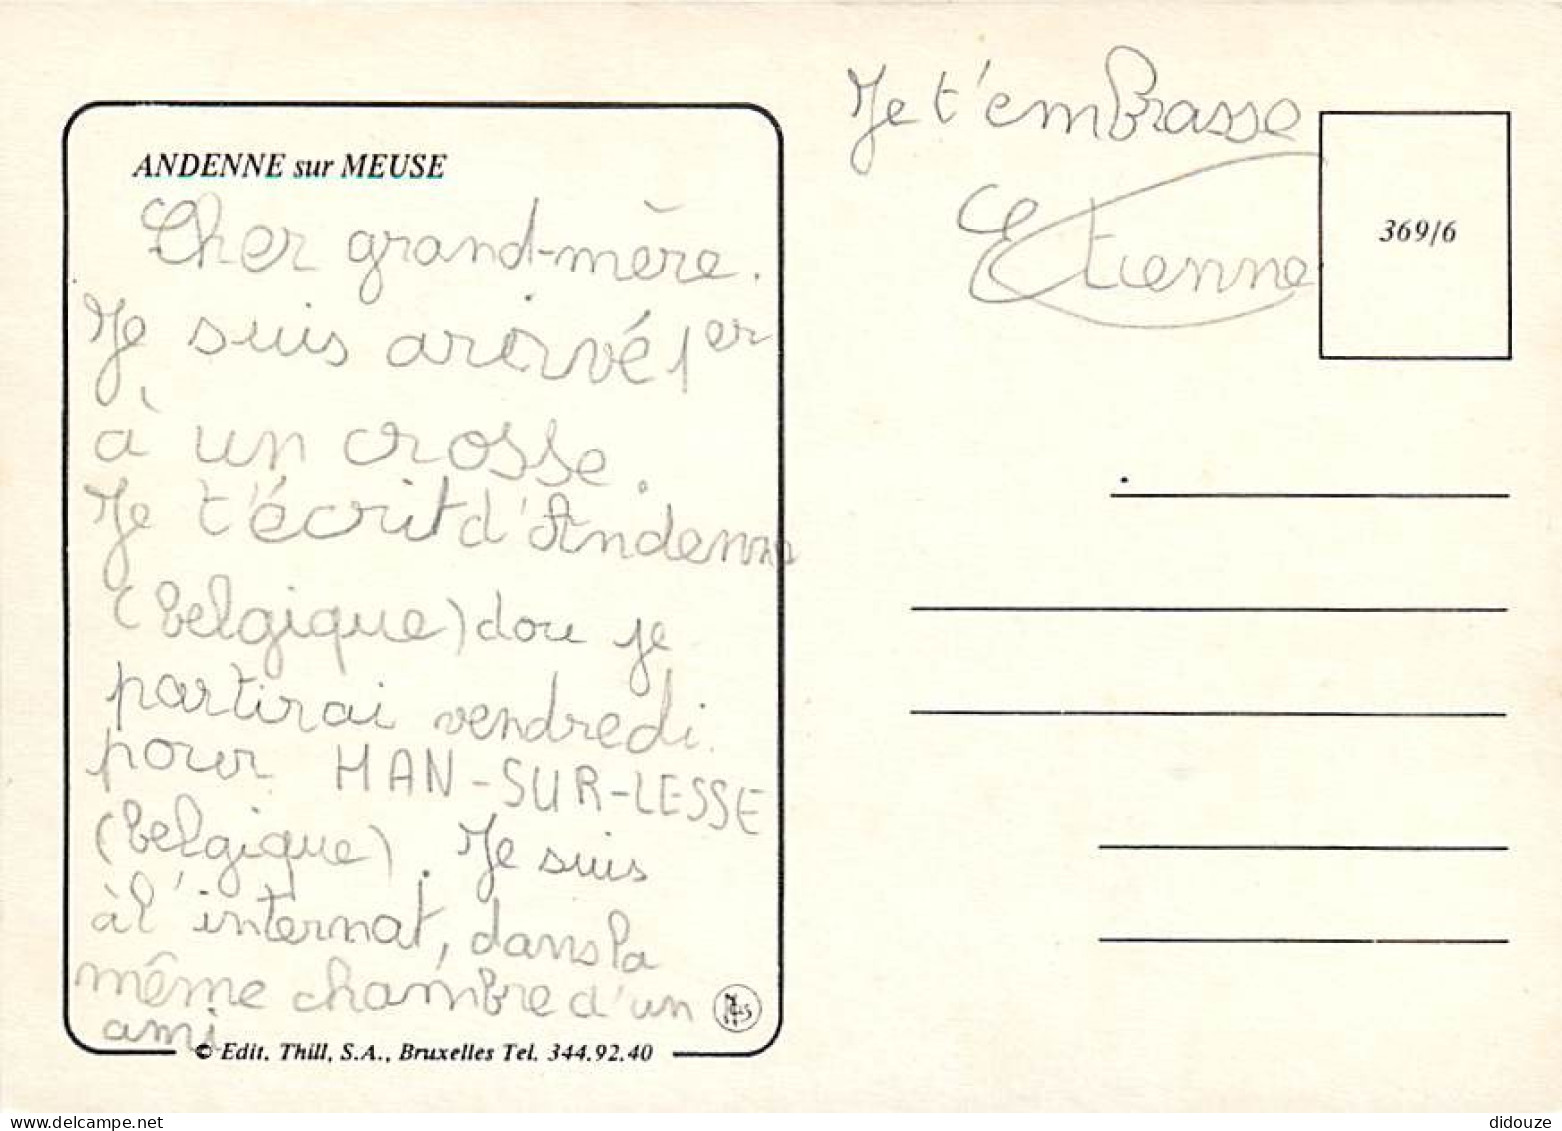 ANDENNE sur MEUSE
Cher grand-mère.
Je suis arirvé 1er
à un crosse.
Je t'écrit d'Andenne
(belgique) dou je
partirai vendredi
pour HAN-SUR-LESSE
(belgique). Je suis
à l'internat, dans la
même chambre d'un
ami
© Edit. Thill, S.A., Bruxelles Tel. 344.92.40
Je t'embrasse
Etienne
369/6
didouze